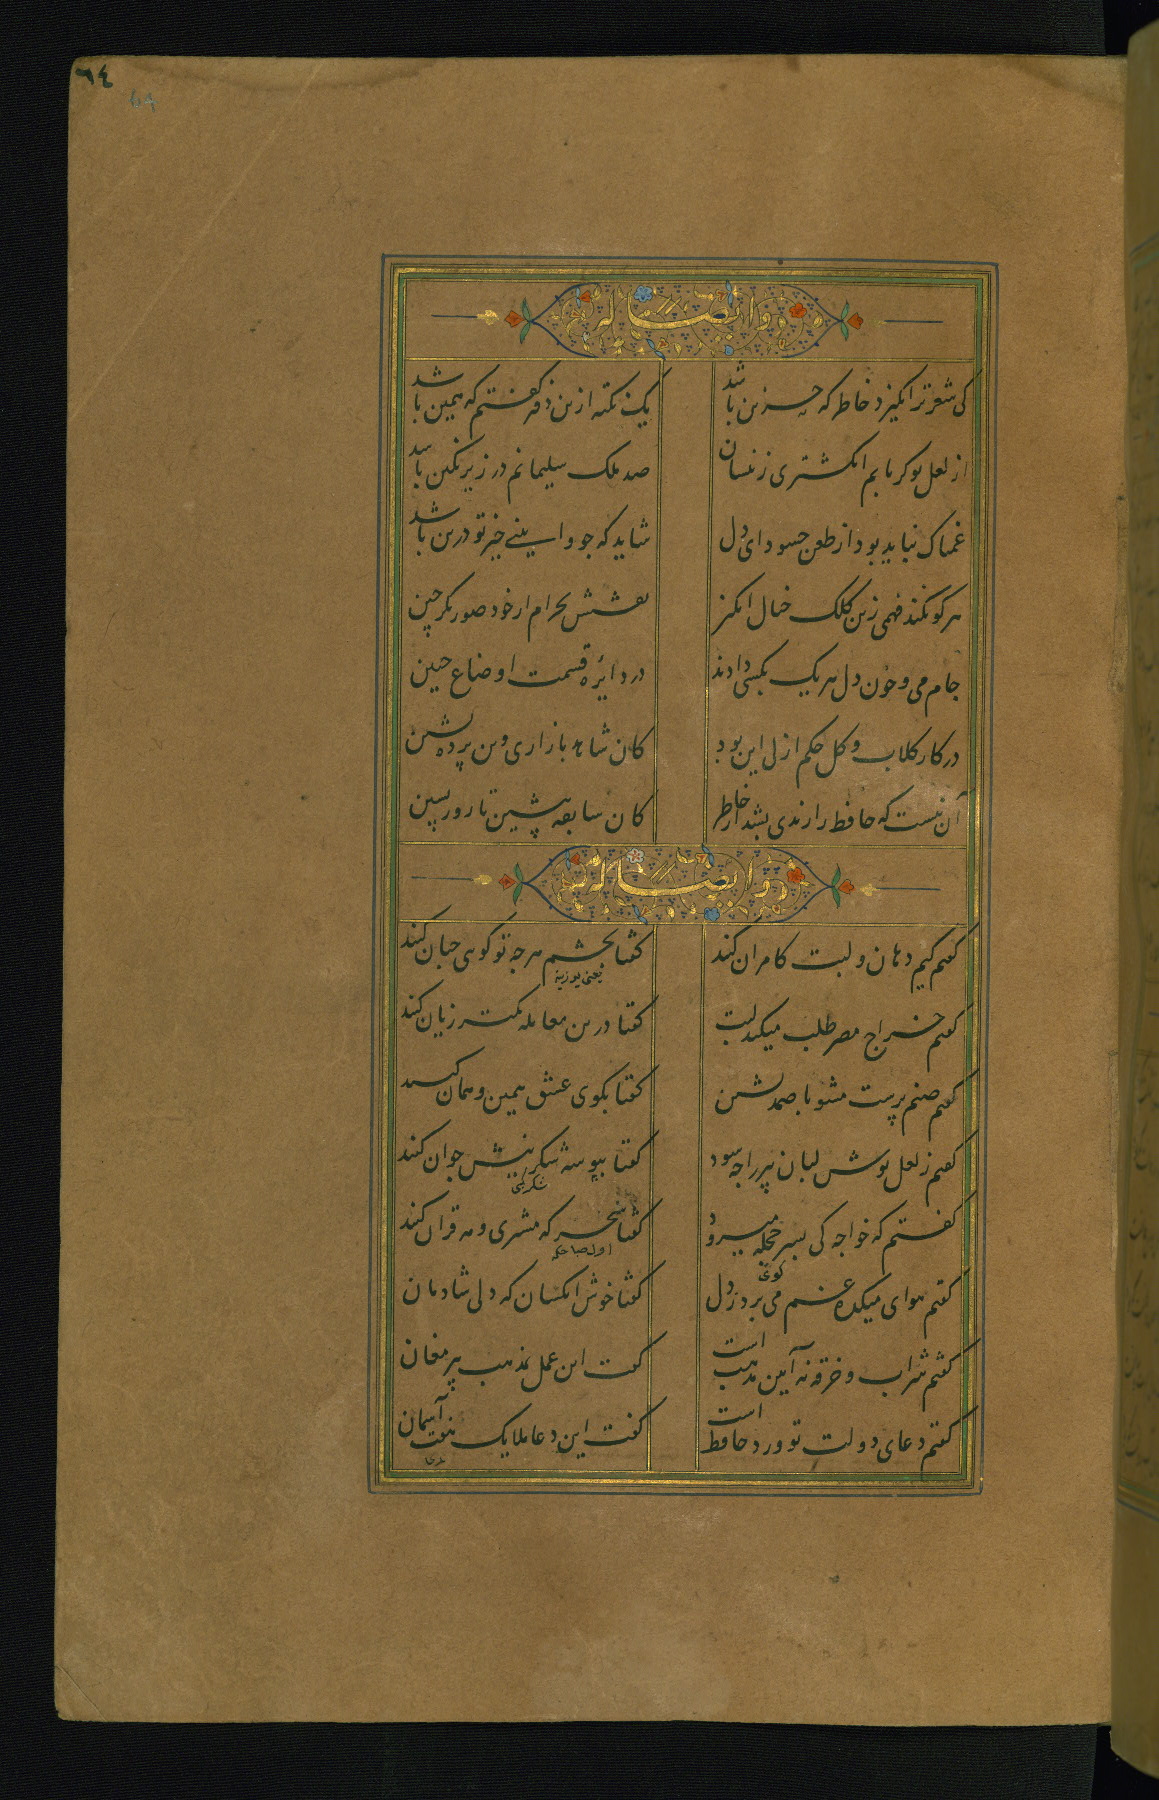 ٦٤
وایضا له
کی شعر تر انگیزد خاطر که حزین باشد
یک نکته ازین دفتر گفتم که همین باشد
از لعل تو گر یابم انگشتری زنسان
صد ملک سلیمانم در زیر نگین باشد
غمناک نباید بود از طعن حسود ای دل
شاید که جو وابینی خیر تو درین باشد
هر کو نکند فهمی زین کلک خیال انگیز
نقشش بحرام ار خود صورتگر چین
جام می و خون دل هر یک بکسی دادند
در دائره قسمت اوضاع چنین
در کار کلاب و کل حکم ازلی این بود
کان شاهد بازاری وین پرده نشین
آن نیست که حافظ را رندی بشد از خاطر
کان سابقه پیشین تا روز پسین
وایضا له
کفتم کیم دهان و لبت کامران کنند
کفتا بچشم هرچه تو کوی چنان کنند
کفتم خراج مصر طلب میکند لبت
کفتا درین معامله کمتر زیان کنند
کفتم صنم پرست مشو با صمد نشین
کفتا بکوی عشق همین و همان کنند
کفتم ز لعل نوش لبان پیر را چه سود
کفتا ببوسه شکرینش جوان کنند
کفتم که خواجه کی بسر حجله میرود
کفتا سحر که مشتری و مه قران کنند
کفتم هوای میکده غم می برد ز دل
کفتا خوش انکسان که دلی شادمان
کفتم شراب و خرقه نه آیین مذهب است
کفت این عمل بمذهب پیر مغان
کفتم دعای دولت تو ورد حافظ است
کفت این دعا ملایک هفت آسمان